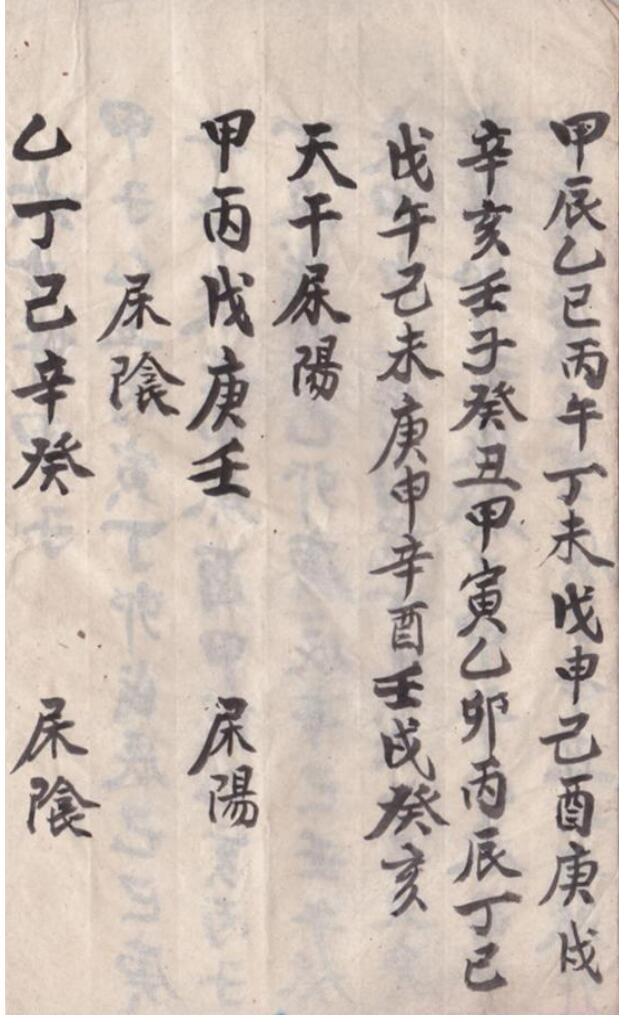 甲辰乙巳丙午丁未戊申己酉庚戌
辛亥壬子癸丑甲寅乙卯丙辰丁巳
戊午己未庚申辛酉壬戌癸亥
天干杘陽
甲丙戊庚壬 杘陽
杘陰
乙丁己辛癸 杘陰